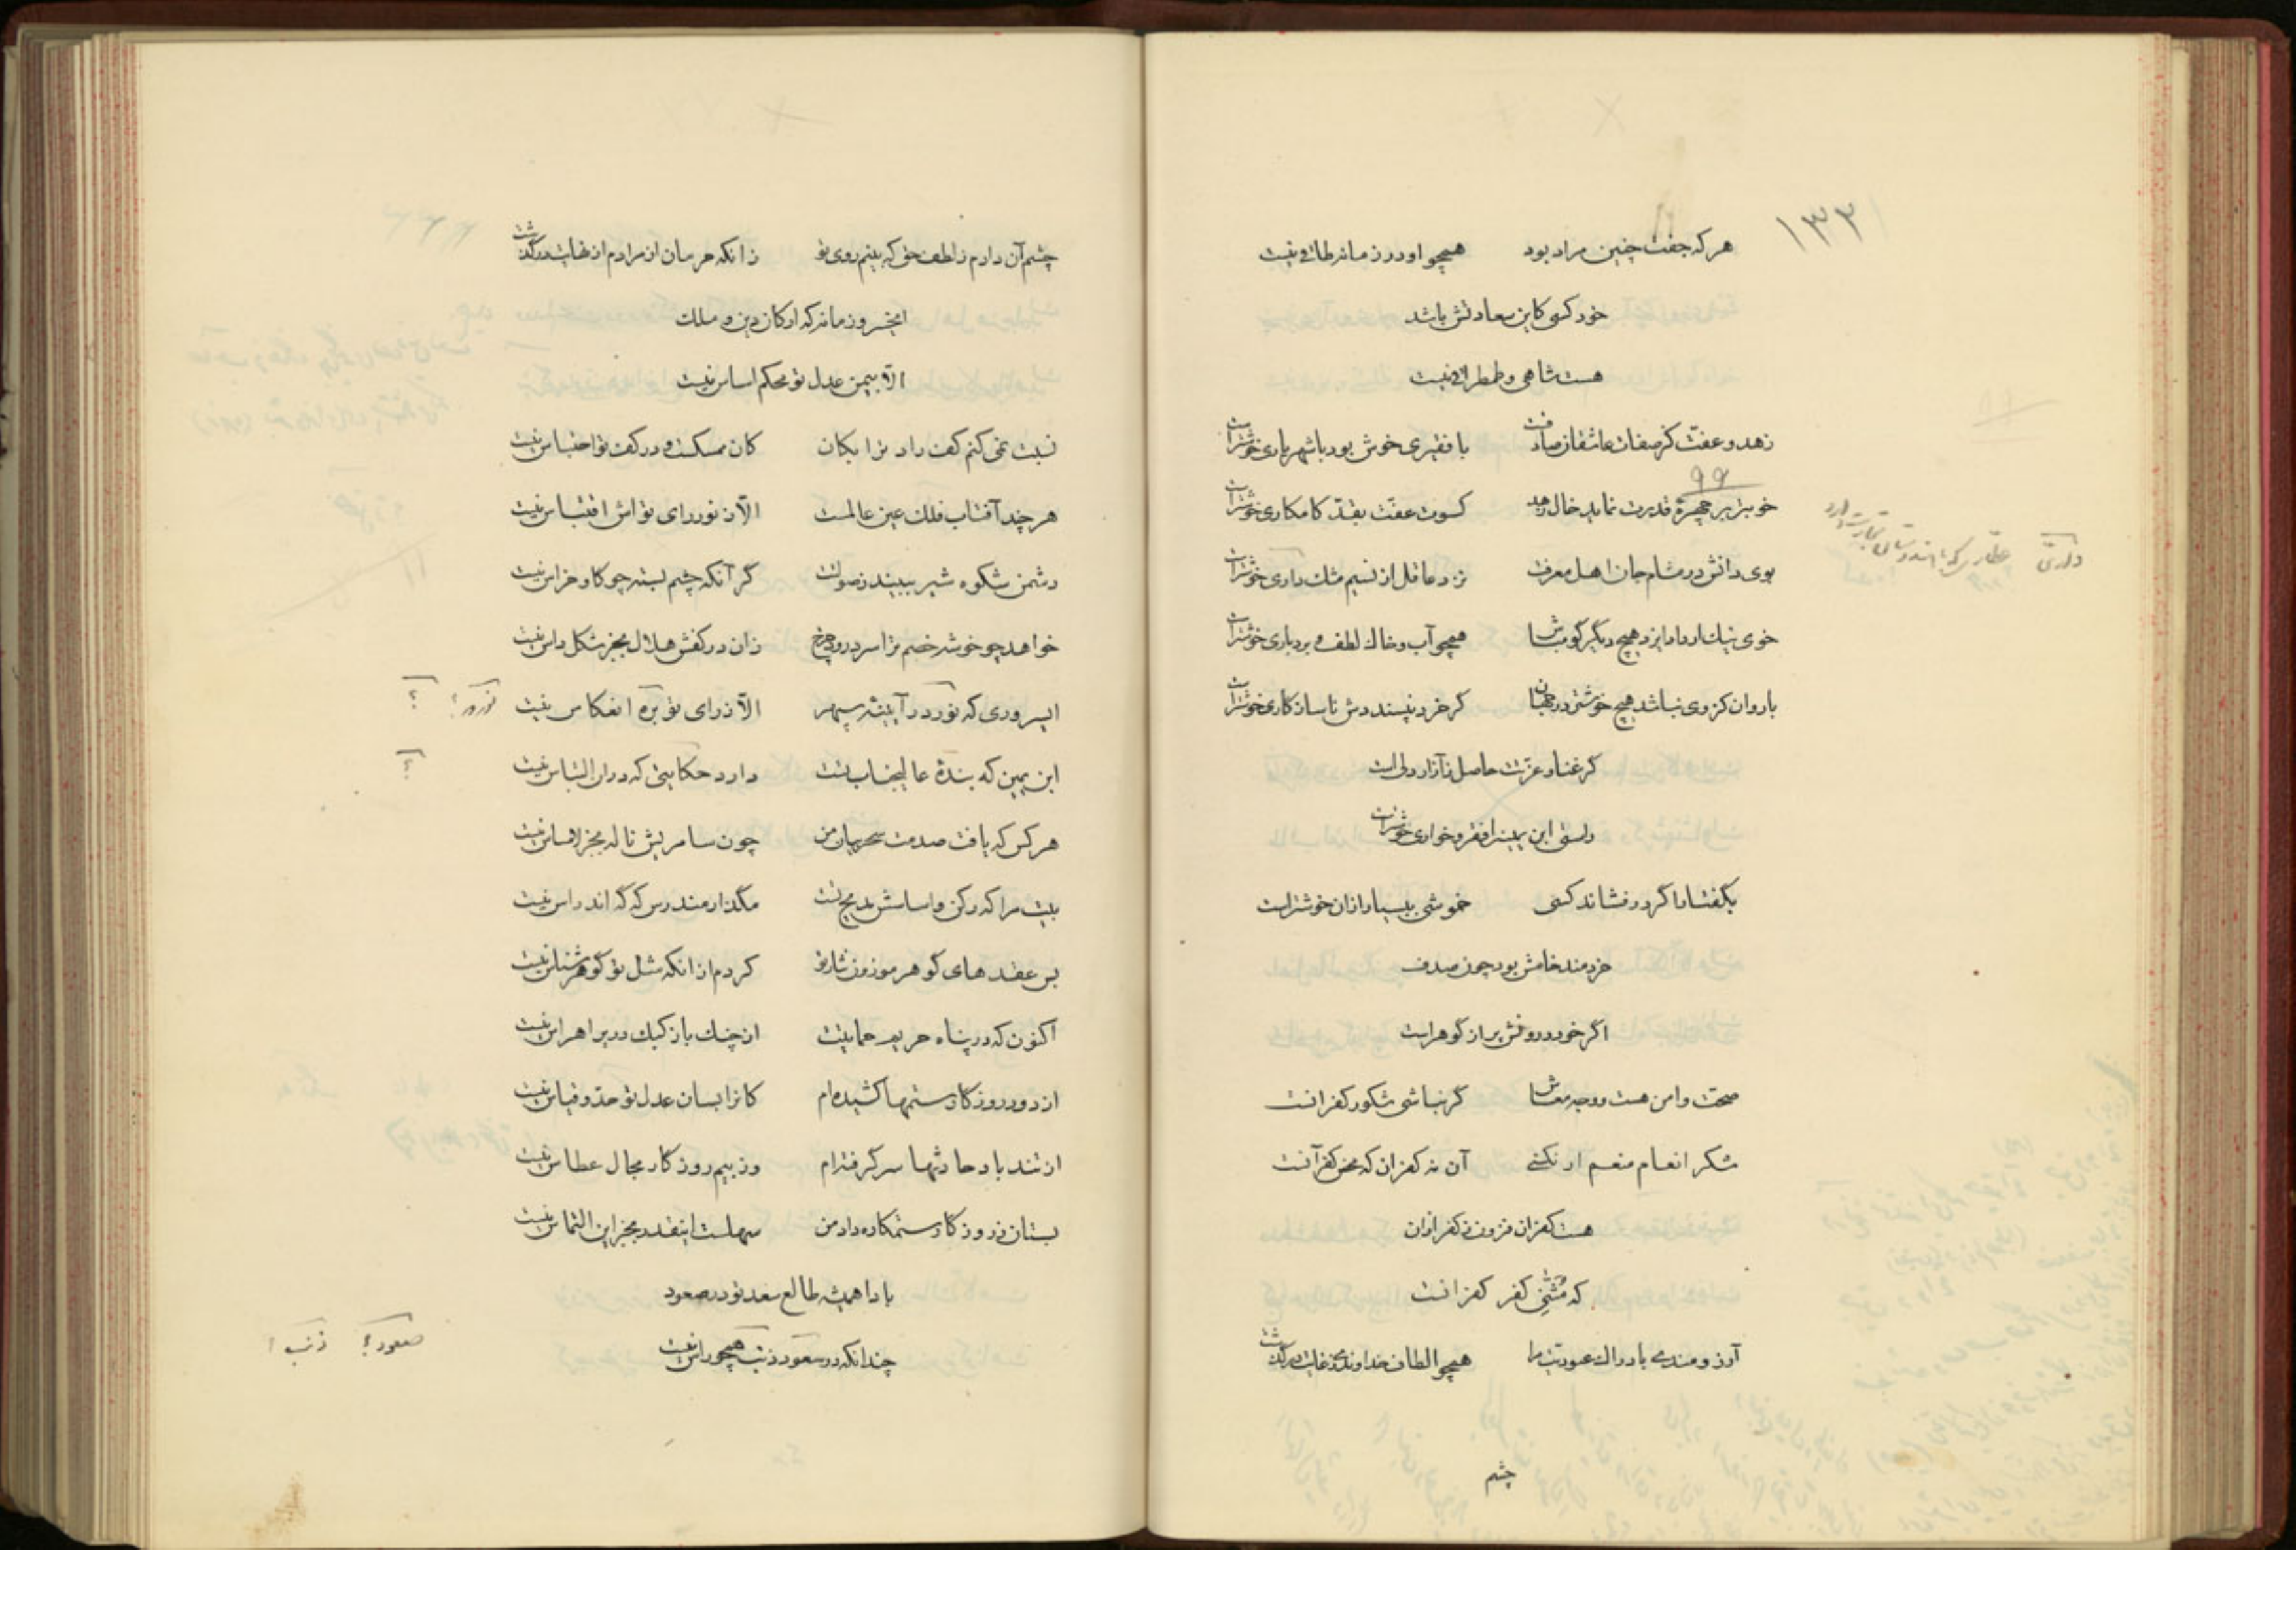 ۱۳۲
هر که جفت چنین مراد بود همچو او در زمانه طاقی نیست
خود کسی کاین سعادتش باشد
هست شاهی و طمطراقی نیست
زهد و عفت کز صفات عاشقان صادقست با فقیری خوش بود با شهریاری خوشتر است
۹۹
خوبتر بر چهرهٔ قدرت نماید خال زهد کسوت عفت بقدّ کامکاری خوشتر است
بوی دانش در مشام جان اهل معرفت نزد عاقل از نسیم مشک داری خوشتر است
خوی نیک ار داد ایزد هیچ دیگر گو مباش همچو آب و خاک لطف و بردباری خوشتر است
باروان کز وی نباشد هیچ خوشتر در جهان گر خرد نپسنددش ناسازکاری خوشتر است
گر غنا و عزت حاصل ز آزار دلی است
راستی ابن یمین را فقر و خواری خوشتر است
بگفتار اگر در فشاند کسی خموشی بسی بار از آن خوشتر است
خردمند خامش بود چون صدف
اگر خود درونش پر از گوهر است
صحت و امن هست و وجه معاش گر نباشی شکور کفرانست
شکر انعام منعم ار نکنی آن نه کفران که محض کفر آنست
هست کفران فزون ز کفر از آن
که مُثنّی کفر کفرانست
آرزومندی بادراک عبودیت مرا همچو الطاف خداوندی ز غایت درگذشت
چشم
چشم آن دارم ز لطف حق که بینم روی تو زانکه حرمان از مرادم از نهایت درگذشت
ایخسرو زمانه که ارکان دین و ملک
الا بیمن عدل تو محکم اساس نیست
نسبت نمی کنم کف راد ترا بکان کان ممسکست و در کف تو احتباس نیست
هر چند آفتاب فلک عین عالمست الا ز نور رای تواش اقتباس نیست
دشمن شکوه شیر ببیند ز صولتت گر آنکه چشم بسته چو گاو خراس نیست
خواهد چو خوشه خصم ترا سر درود چرخ زان در کفش هلال بجز شکل داس نیست
ایسروری که نور در آیینهٔ سپهر الا ز رای تو بره انعکاس نیست
ابن یمین که بندهٔ عالیجناب تست دارد حکایتی که در آن التباس نیست
هر کس که یافت صدمت سحر بیان من چون سامریش ناله بجز لامساس نیست
بیت مرا که رکن و اساسش مدیح تست مگذار مندرس که گه اندراس نیست
بس عقدهای گوهر موزون نثار تو کردم از آنکه مثل تو گوهرشناس نیست
اکنون که در پناه حریم حمایتت از چنگ باز کبک دری را هراس نیست
از دور روزگار ستمها کشیده ام کانرا بسان عدل تو حد و قیاس نیست
از تند باد حادثها سر گرفته ام وز بیم روزگار مجال عطاس نیست
بستان ز روزگار ستمکاره داد من سهلست اینقدر بجز این التماس نیست
بادا همیشه طالع سعد تو در صعود
چندانکه در سعود ذنب همچو راس نیست
صعود؟ ذنب؟